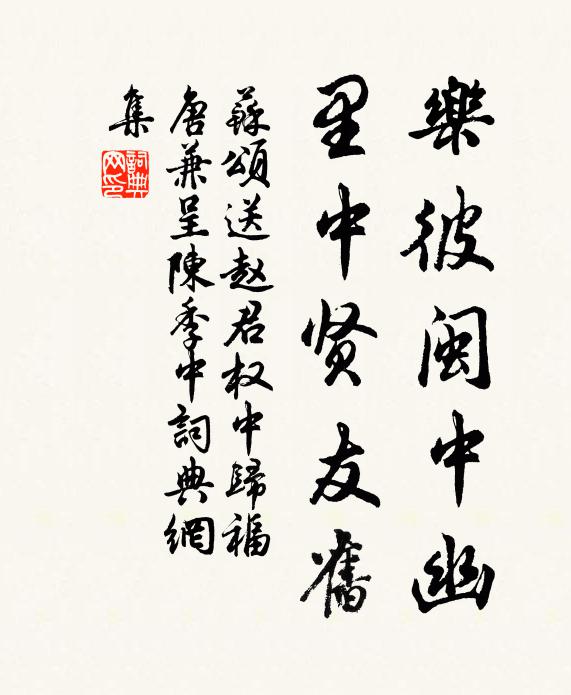 樂彼闽中幽
里中贤友舊
蘇頌送赵君权中歸福
唐兼呈陳季中詞典網
集
詞典网印